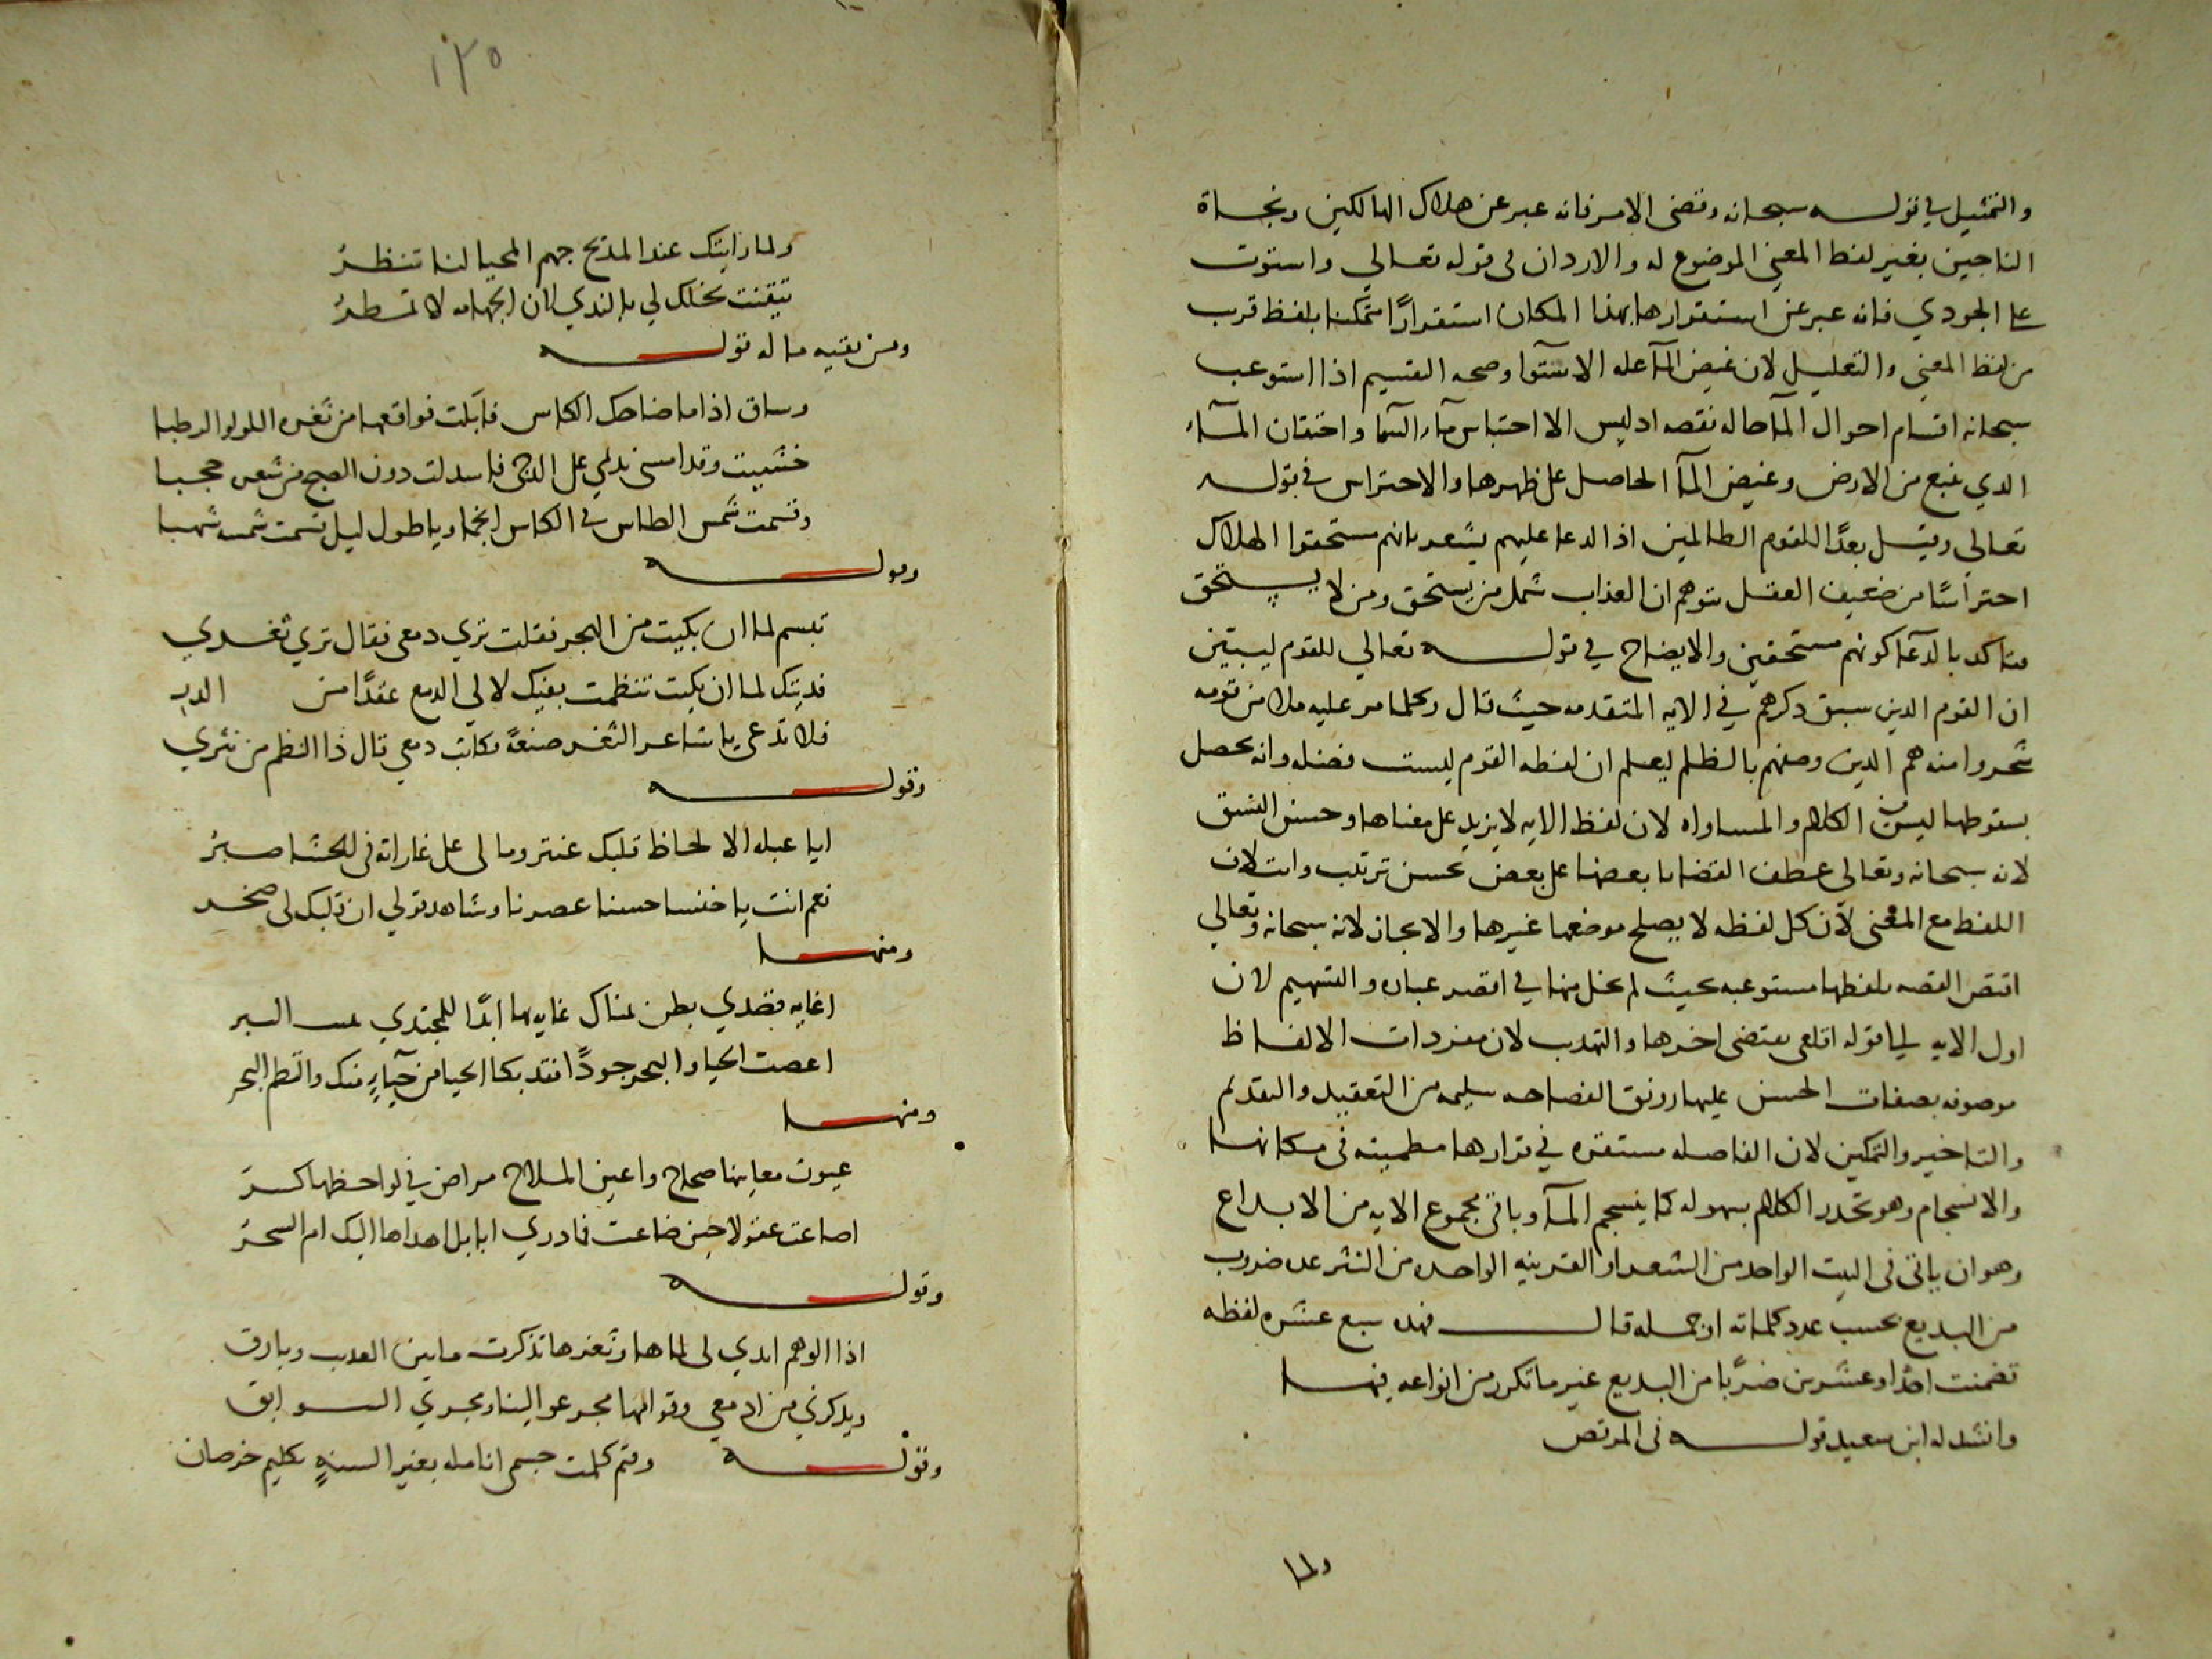 والتمثيل في قوله سبحانه وقضى الامر فانه عبر عن هلاك الهالكين ونجاة
الناجين بغير لفظ المعنى الموضوع له والارداف في قوله تعالي واستوت
على الجودي فانه عبر عن استقرارها بهذا المكان استقرارًا متمكنا بلفظ قرب
من لفظ المعنى والتعليل لان غيض المآ عله الاستوا وصحه التقسيم اذا استوعب
سبحانه اقسام احوال المآ حاله نقصه اد ليس الا احتباس مآء السما واحتقان المآء
الدي ينبع من الارض وغيض المآ الحاصل على ظهرها والاحتراس في قوله
تعالي وقيل بعدًا للقوم الظالمين اذ الدعا عليهم يشعر بانهم مستحقوا الهلاك
احتراسًا من ضعيف العقل يتوهم ان العذاب شمل من يستحق ومن لا يستحق
فتاكد بالدعآ كونهم مستحقين والايضاح في قوله تعالي للقوم ليبين
ان القوم الدين سبق دكرهم في الايه المتقدمه حيث قال وكلما مر عليه ملا من قومه
سخروا منه هم الدين وصفهم بالظلم ليعلم ان لفظه القوم ليست فضله وانه يحصل
بسقوطها لبس في الكلام والمساواه لان لفظ الايه لا يزيد على معناها وحسن النسق
لانه سبحانه وتعالى عطف القضايا بعضها على بعض بحسن ترتيب وائتلاف
اللفظ مع المعنى لان كل لفظه لا يصلح موضعها غيرها والايجاز لانه سبحانه وتعالي
اقتص القصه بلفظها مستوعبه بحيث لم يخل منها في اقصر عباره والتسهيم لان
اول الايه الي قوله اقلعى يقتضى اخرها والتهديب لان مفردات الالفاظ
موصوفه بصفات الحسن عليها رونق الفصاحه سليمه من التعقيد والتقديم
والتاخير والتمكين لان الفاصله مستقره في قرارها مطمينه في مكانها
والانسجام وهو تحدر الكلام بسهوله كما ينسجم المآ وباقي مجموع الايه من الابداع
وهو ان ياتى فى البيت الواحد من الشعر او القرينه الواحده من النثر عده ضروب
من البديع بحسب عدد كلماته او جمله قال فهده سبع عشره لفظه
تضمنت احدًا وعشرين ضربًا من البديع غير ما تكرر من انواعه فيها
وانشد له ابن سعيد قوله فى المرقص
ولما
١٢٥
ولما رايتك عند المديح جهم المحيا لنا تنظرُ
تيقنت بخلك لي بالندي لان الجهامه لا تمطرُ
ومن بقيه ماله قوله
وساق اذا ما ضاحك الكاس قابلت فواقعها من ثغره اللولو الرطبا
خشيت وقد امسى نديمي على الدجى فاسدلت دون الصبح من شعره حجبا
وقسمت شمس الطاس في الكاس انجما ويا طول ليل قسمت شمسه شهبا
وقوله
تبسم لما ان بكيت من الهجر فقلت تري دمعى فقال تري ثغري
فديتك لما ان بكيت تنظمت بفيك لالي الدمع عقدًا من الدر
فلا تدعى يا شاعر الثغر صنعةً فكاتب دمعي قال ذا النظم من نثري
وقوله
ايا عبله الالحاظ قلبك عنتر ومالى على غاراته فى الحشا صبرُ
نعم انت يا خنسا حسنا عصرنا وشاهد قولي ان قلبك لى صخر
ومنها
اغايه قصدي بطن يمناك غايه بها ابدًا للمجتدي السر
اعصت الحيا والبحر جودًا فقد بكا الحيا من حيآءٍ منك والتطم البحر
ومنها
عيون معاينها صحاح واعين الملاح مراض في لواحظها كسرُ
اضاعت عقولا حين ضاعت فما دري ابابل اهداها اليك ام السحرُ
وقوله
اذا الوهم ابدي لى لماها وثغرها تذكرت ما بين العديب وبارق
ويدكرني من ادمعي وقوامها مجر عوالينا ومجري السوابق
وقوله وكم كلمت جسمى انامله بغير السنهٍ تكليم خرصان